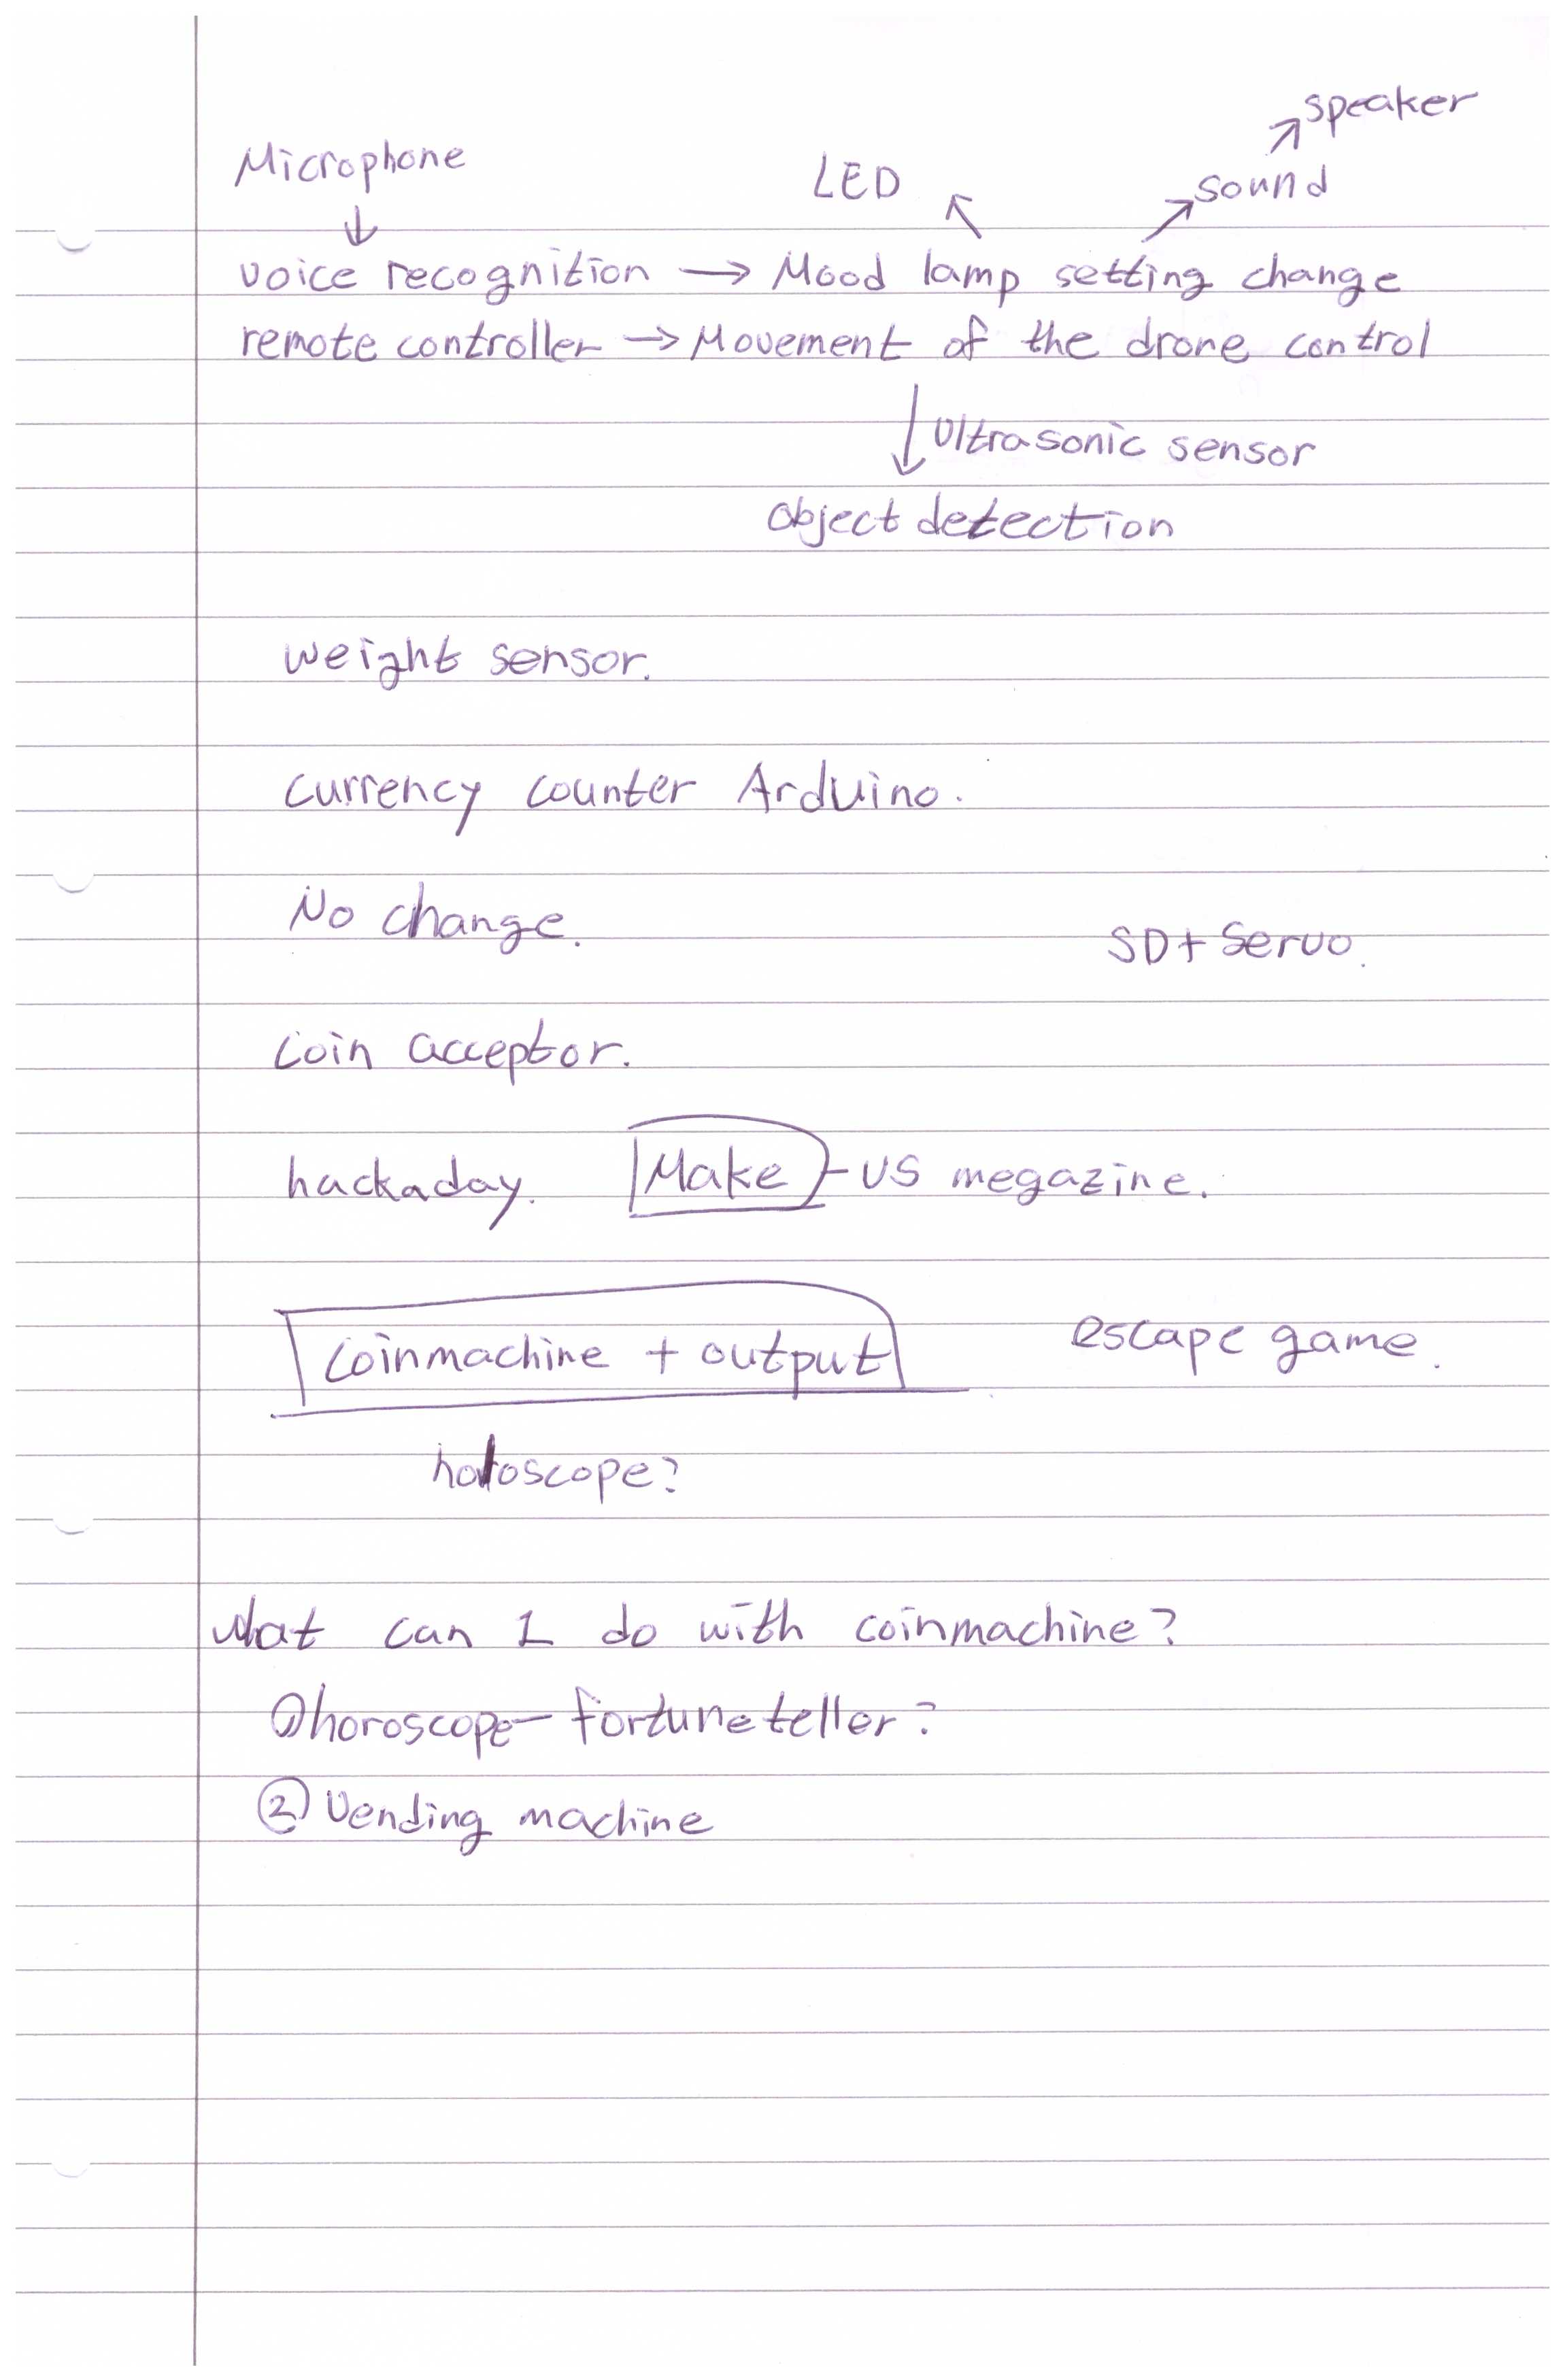 speaker
Microphone
LED
sound
voice recognition → Mood lamp setting change
remote controller → Movement of the drone control
Ultrasonic sensor
object detection
weight sensor.
currency counter Arduino.
No change.
SD + Servo.
coin acceptor.
hackaday. Make - US megazine.
coinmachine + output
escape game.
horoscope?
what can I do with coinmachine?
① horoscope - fortune teller?
② Vending machine